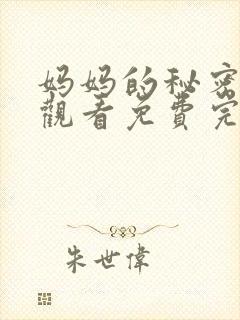 妈妈的秘密
觀看免費完
朱世偉